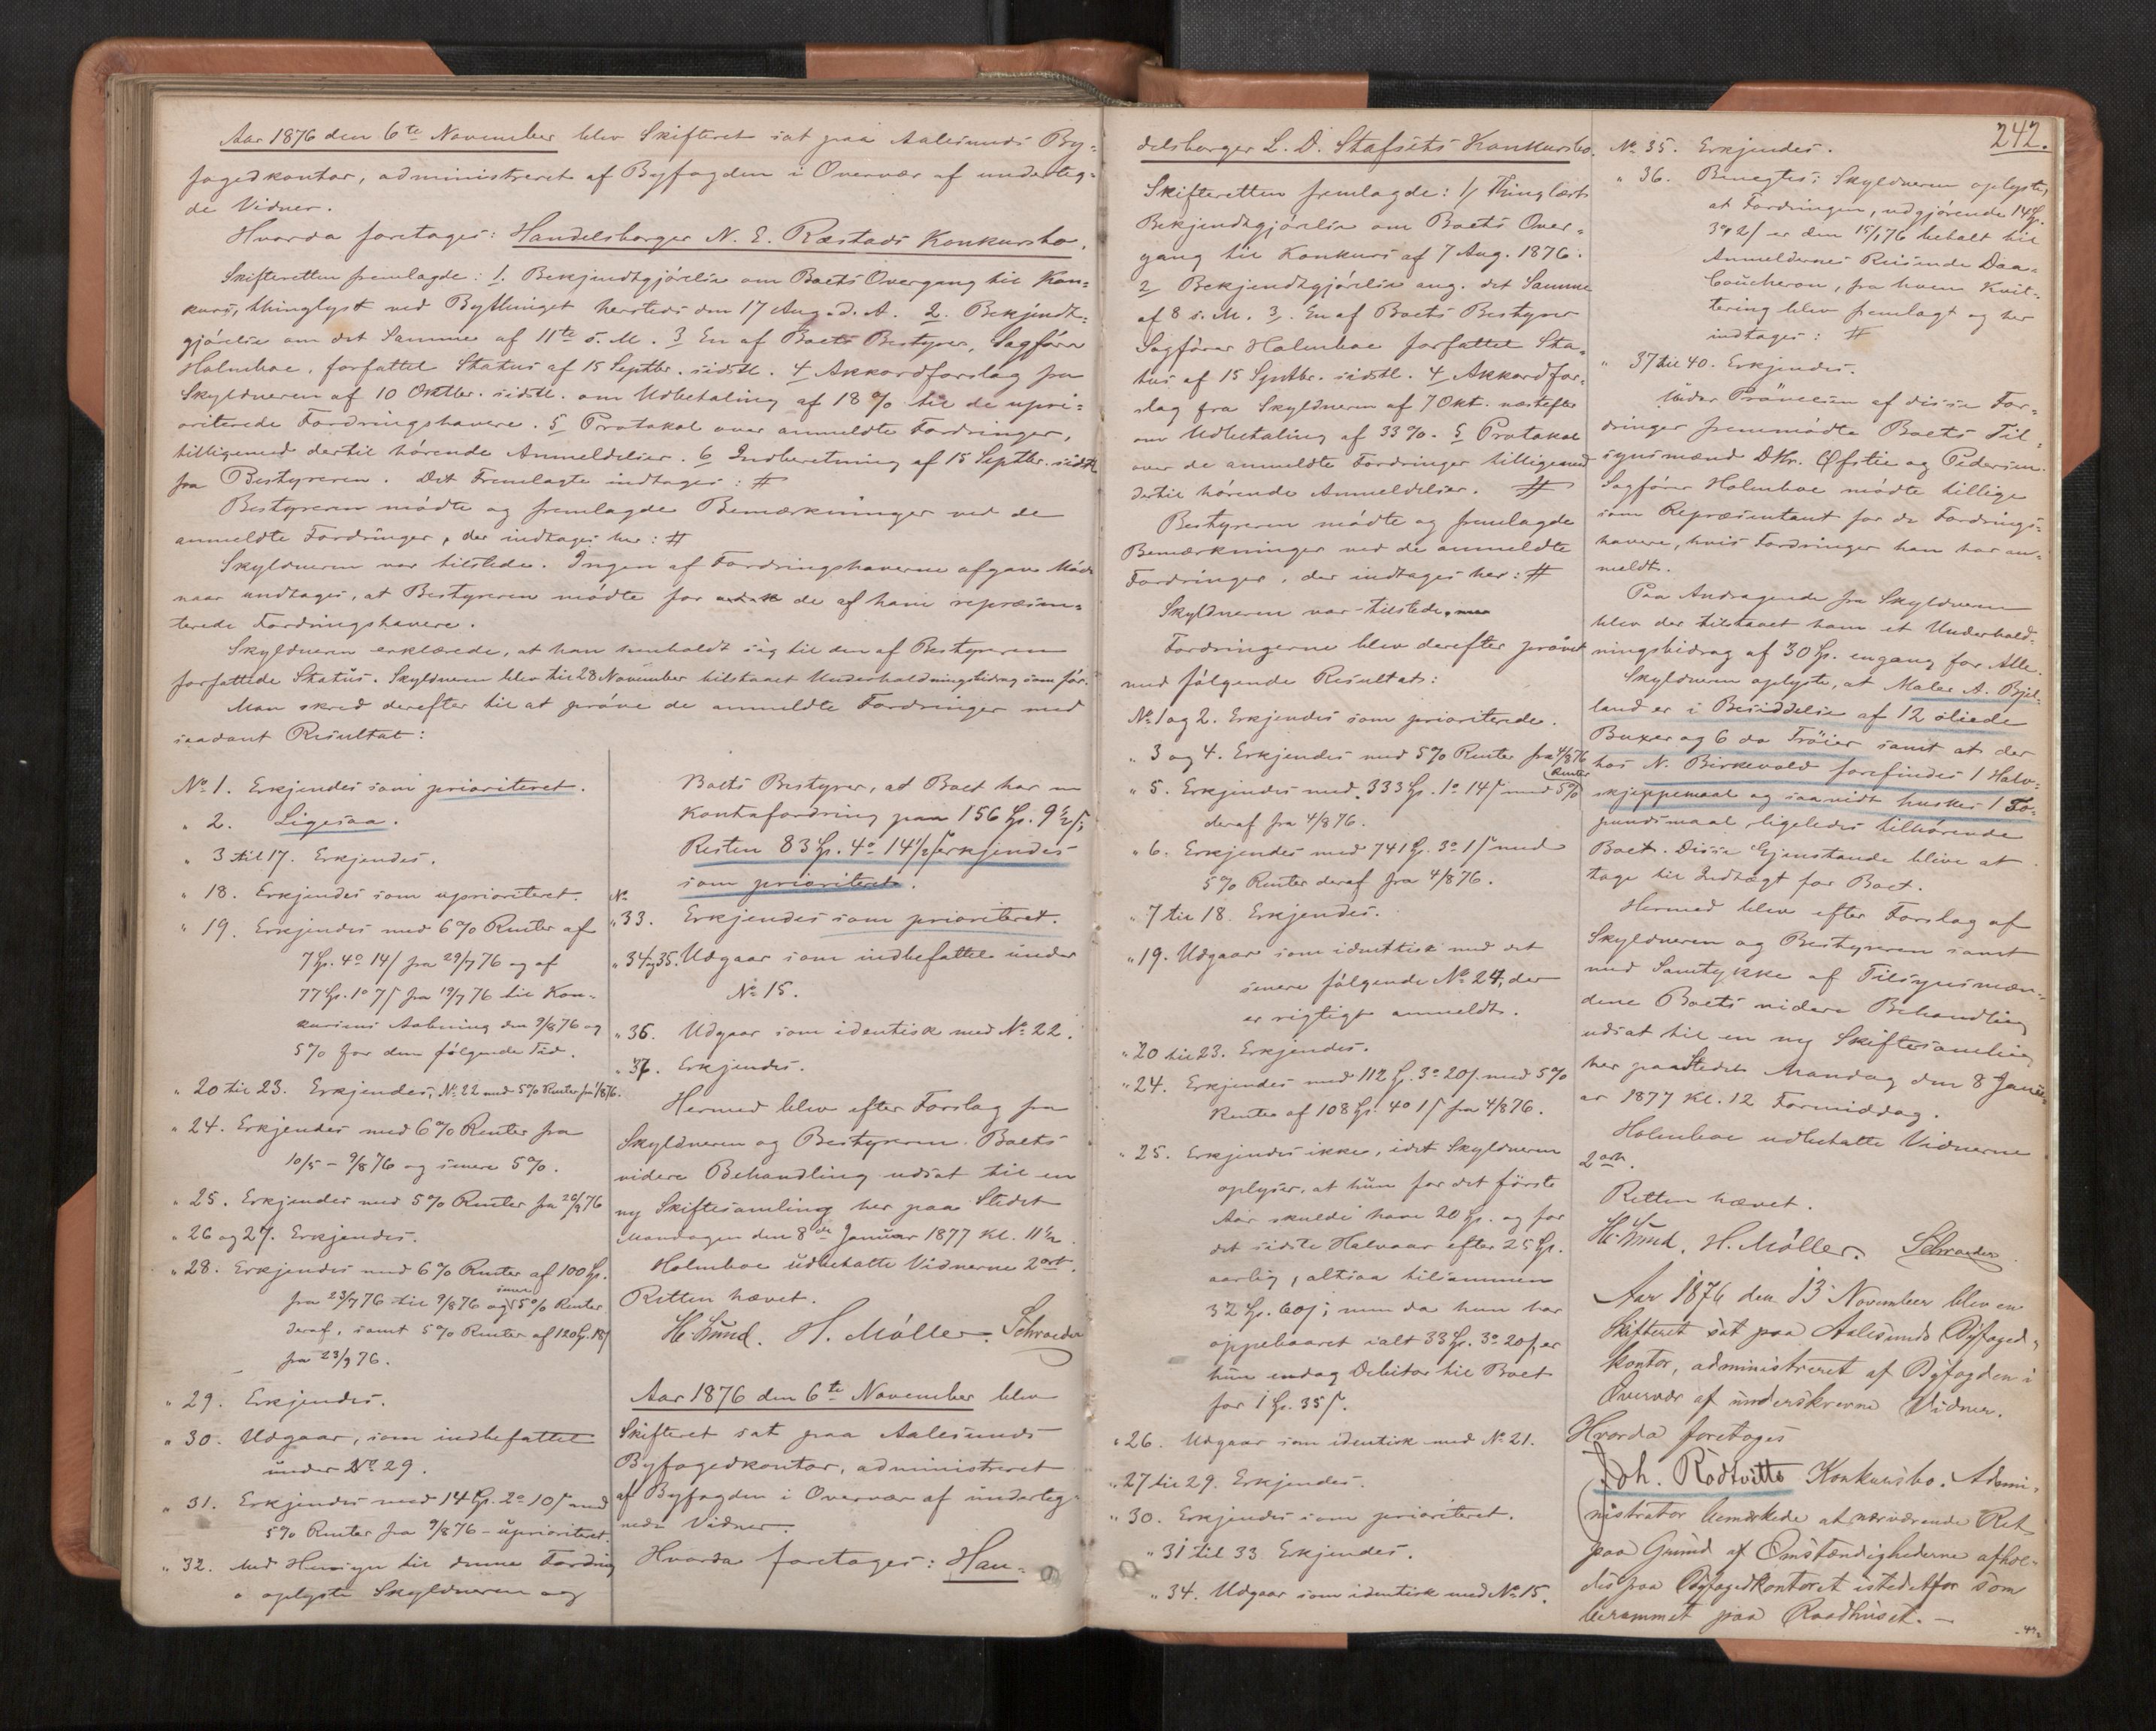 Aar 1876 den 6te November blev Skifteret sat paa Aalesunds By=
fogedkontor, administreret af Byfogden i Overvær af underteg=
de Vidner.
Hvorda foretages: Handelsborger N. E. Ræstads Konkursbo.
Skifteretten fremlagde: 1. Bekjendtgjörelse om Boets Overgang til Kon=
kurs, thinglyst ved Bythinget hersteds den 17 Aug. d. A. 2. Bekjendt=
gjörelse om det Samme af 11te s. M. 3 En af Boets Bestyrer, Sagförer
Holmboe, forfattet Status af 15 Septbr. sidstl. 4 Akkordforslag fra
Skyldneren af 10 Oktbr. sidstl. om Udbetaling af 18 % til de upri=
oriterede Fordringshavere. 5 Protokol over anmeldte Fordringer,
tilligemed dertil hörende Anmeldelser. 6 Indberetning af 15 Septbr. sidstl.
fra Bestyreren. Det Fremlagte indtages: #
Bestyreren mödte og fremlagde Bemærkninger ved de
anmeldte Fordringer, der indtages her: #
Skyldneren var tilstede. Ingen af Fordringshaverne afgave Möde
naar undtages, at Bestyreren mödte for de af ham repræsen=
terede Fordringshavere.
Skyldneren erklærede, at han henholdt sig til den af Bestyreren
forfattede Status. Skyldneren blev til 28 November tilstaaet Underholdningsbidrag som för.
Man skred derefter til at pröve de anmeldte Fordringer med
saadant Resultat:
No 1. Erkjendes som prioriteret.
" 2. Ligesaa.
" 3 til 17. Erkjendes.
" 18. Erkjendes som uprioriteret.
" 19. Erkjendes med 6% Renter af
7 Sp. 4o 14 s fra 29/7 76 og af
77 Sp. 1o 7 s fra 19/7 76 til Kon-
kursens Aabning den 9/8 76 og
5% for den fölgende Tid.
" 20 til 23. Erkjendes, No 22 med 5% Renter fra 1/8 76.
" 24. Erkjendes med 6% Renter fra
10/5 - 9/8 76 og senere 5%.
" 25. Erkjendes med 5% Renter fra 20/9 76
" 26 og 27. Erkjendes.
" 28. Erkjendes med 6% Renter af 100 Sp.
fra 23/7 76 til 9/8 76 og senere 5% Renter
deraf, samt 5% Renter af 120 Sp. 18 s
fra 23/9 76.
" 29. Erkjendes.
" 30. Udgaar, som indbefattet
under No 29.
" 31. Erkjendes med 14 Sp. 2o 10 s med
5% Renter fra 9/8 76 - uprioriteret.
" 32. Med Hensyn til denne Fordring
oplyste Skyldneren og
Boets Bestyrer, at Boet har en
Kontrafordring paa 156 Sp. 9 1/2 s;
Resten 83 Sp. 4o 14 1/2 s erkjendes
som prioriteret.
No
" 33. Erkjendes som prioriteret.
" 34 og 35. Udgaar som indbefattet under
No 15.
" 36. Udgaar som identisk med No 22.
" 37. Erkjendes.
Hermed blev efter Forslag fra
Skyldneren og Bestyreren Boets
videre Behandling udsat til en
ny Skiftesamling her paa Stedet
Mandagen den 8de Januar 1877 Kl. 11 1/2.
Holmboe udbetalte Vidnerne 2 ort.
Retten hævet.
H. Sund. H. Møller. Schroeder
Aar 1876 den 6te November blev
Skifteret sat paa Aalesunds
Byfogedkontor, administreret
af Byfogden i Overvær af underteg=
nede Vidner.
Hvorda foretages: Han=
242.
delsborger L. D. Stafsets Konkursbo.
Skifteretten fremlagde: 1, Thinglæst
Bekjendtgjörelse om Boets Over=
gang til Konkurs af 7 Aug. 1876.
2 Bekjendtgjörelse ang. det Samme
af 8 s. M. 3. En af Boets Bestyrer
Sagförer Holmboe forfattet Sta=
tus af 15 Septbr. sidstl. 4 Akkordfor=
slag fra Skyldneren af 7 Okt. næstefter
om Udbetaling af 33 %. 5 Protokol
over de anmeldte Fordringer tilligemed
dertil hörende Anmeldelser. #
Bestyreren mödte og fremlagde
Bemærkninger ved de anmeldte
Fordringer, der indtages her: #
Skyldneren var tilstede.
Fordringerne blev derefter prövet
med fölgende Resultat:
No 1 og 2. Erkjendes som prioriterede.
" 3 og 4. Erkjendes med 5% Renter fra 4/8 76
" 5. Erkjendes med 333 Sp. 1o 14 s med 5% Renter
deraf fra 4/8 76.
" 6. Erkjendes med 741 Sp. 3o 1 s med
5% Renter deraf fra 4/8 76.
" 7 til 18. Erkjendes.
" 19. Udgaar som identisk med det
senere fölgende No 24, der
er rigtigt anmeldt.
" 20 til 23. Erkjendes.
" 24. Erkjendes med 112 Sp. 3o 20 s. med 5%
Renter af 108 Sp. 4o 1 s fra 4/8 76.
" 25. Erkjendes ikke, idet Skyldneren
oplyser, at hun for det förste
Aar skulde have 20 Sp. og for
det sidste Halvaar efter 25 Sp.
aarlig, altsaa tilsammen
32 Sp. 60 s; men da hun har
oppebaaret ialt 33 Sp. 3o 20 s, er
hun endog Debitor til Boet
for 1 Sp. 35 s.
" 26. Udgaar som identisk med No 21.
" 27 til 29. Erkjendes.
" 30. Erkjendes som prioriteret.
" 31 til 33 Ekjendes.
" 34. Udgaar som identisk med No 15.
No 35. Erkjendes.
" 36. Benegtes; Skyldneren oplyste,
at Fordringen, udgjörende 14 Sp.
3o 2 s er den 15/1 76 betalt til
Anmeldernes Reisende Daa=
Coucheron, fra hvem Kvit=
tering blev fremlagt og her
indtages: #
" 37 til 40. Erkjendes.
Under Prövelsen af disse For=
dringer fremmödte Boets Til=
synsmænd DHr. Øfstie og Pedersen.
Sagförer Holmboe mödte tillige
som Repræsentant for de Fordrings=
havere, hvis Fordringer han har an=
meldt.
Paa Andragende fra Skyldneren
blev der tilstaaet ham et Underhold=
ningsbidrag af 30 Sp. engang for Alle.
Skyldneren oplyste, at Maler A. Bjel=
land er i Besiddelse af 12 oliede
Buxer og 6 do Tröier samt at der
hos N. Birkevold forefindes 1 Halv=
skjeppemaal og saavidt huskes 1 To=
pundsmaal, ligeledes tilhörende
Boet. Disse Gjenstande blive at
tage til Indtægt for Boet.
Hermed blev efter Forslag af
Skyldneren og Bestyreren samt
med Samtykke af Tilsynsmæn=
dene Boets videre Behandling
udsat til en ny Skiftesamling
her paa Stedet Mandag den 8 Janu=
ar 1877 Kl. 12 Formiddag.
Holmboe udbetalte Vidnerne
2 ort.
Retten hævet.
H. Sund. H. Møller. Schroeder.
Aar 1876 den 13 November blev en
Skifteret sat paa Aalesunds Byfoged=
kontor, administreret af Byfogden i
Overvær af underskrevne Vidner.
Hvorda foretages
Joh. Rödtvitts Konkursbo. Admi=
nistrator bemærkede at nærværende Ret
paa Grund af Omstændighederne afhol=
des paa Byfogedkontoret istedetfor som
berammet paa Raadhuset. —